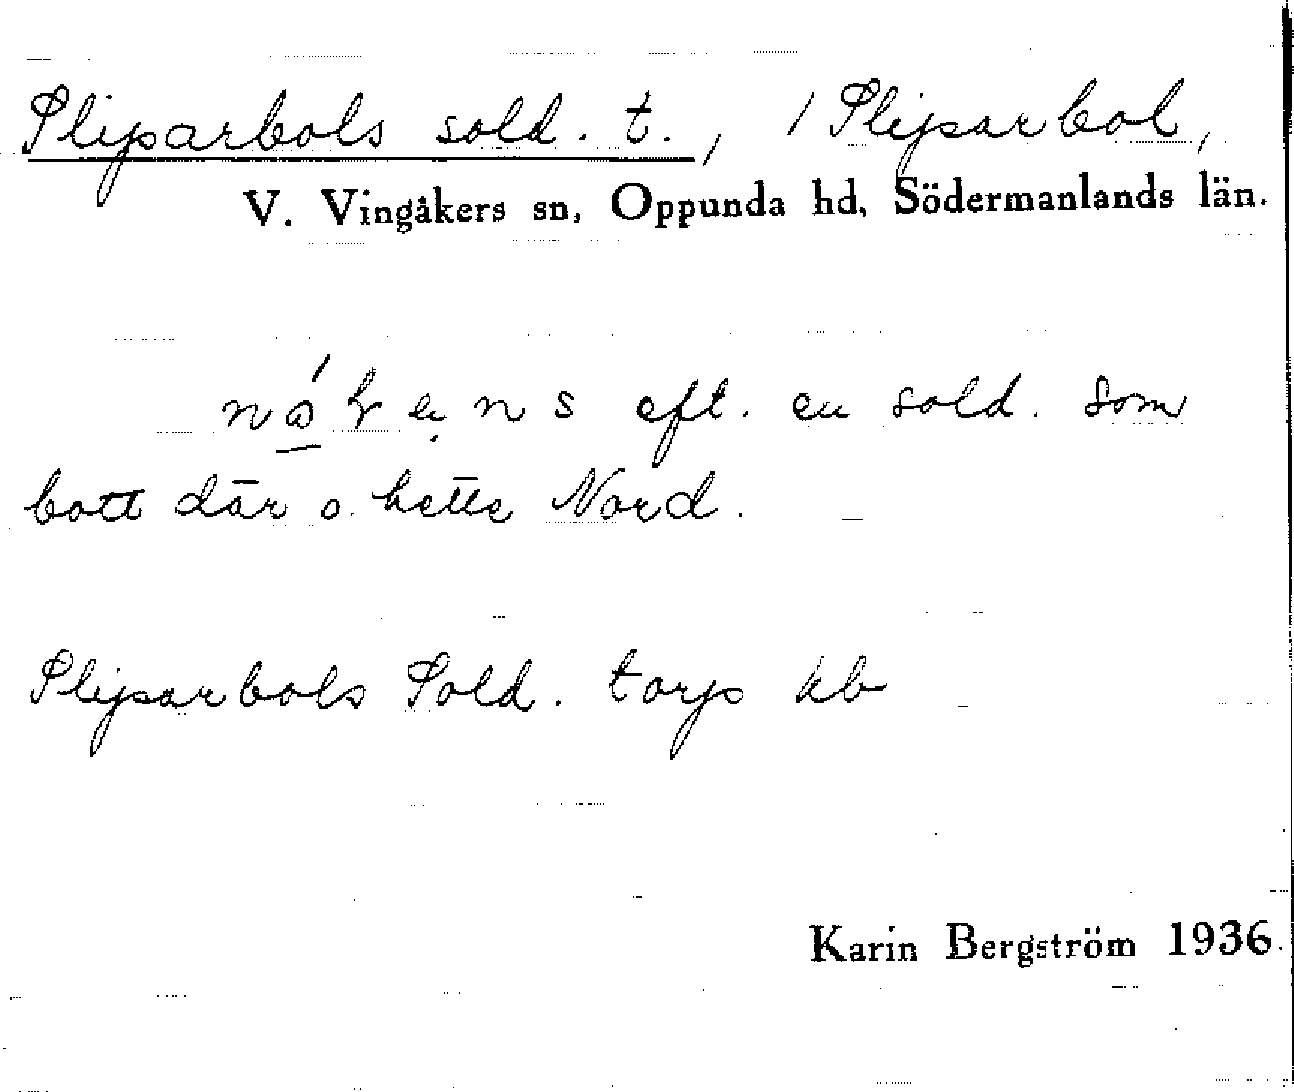 Slipsarbols sold. t., / Slipsarbol,
V. Vingåkers sn, Oppunda hd, Södermanlands län.
eft. en sold. som
bott där o. hette Nord.
Slipsarbols Sold. torp kb
Karin Bergström 1936.